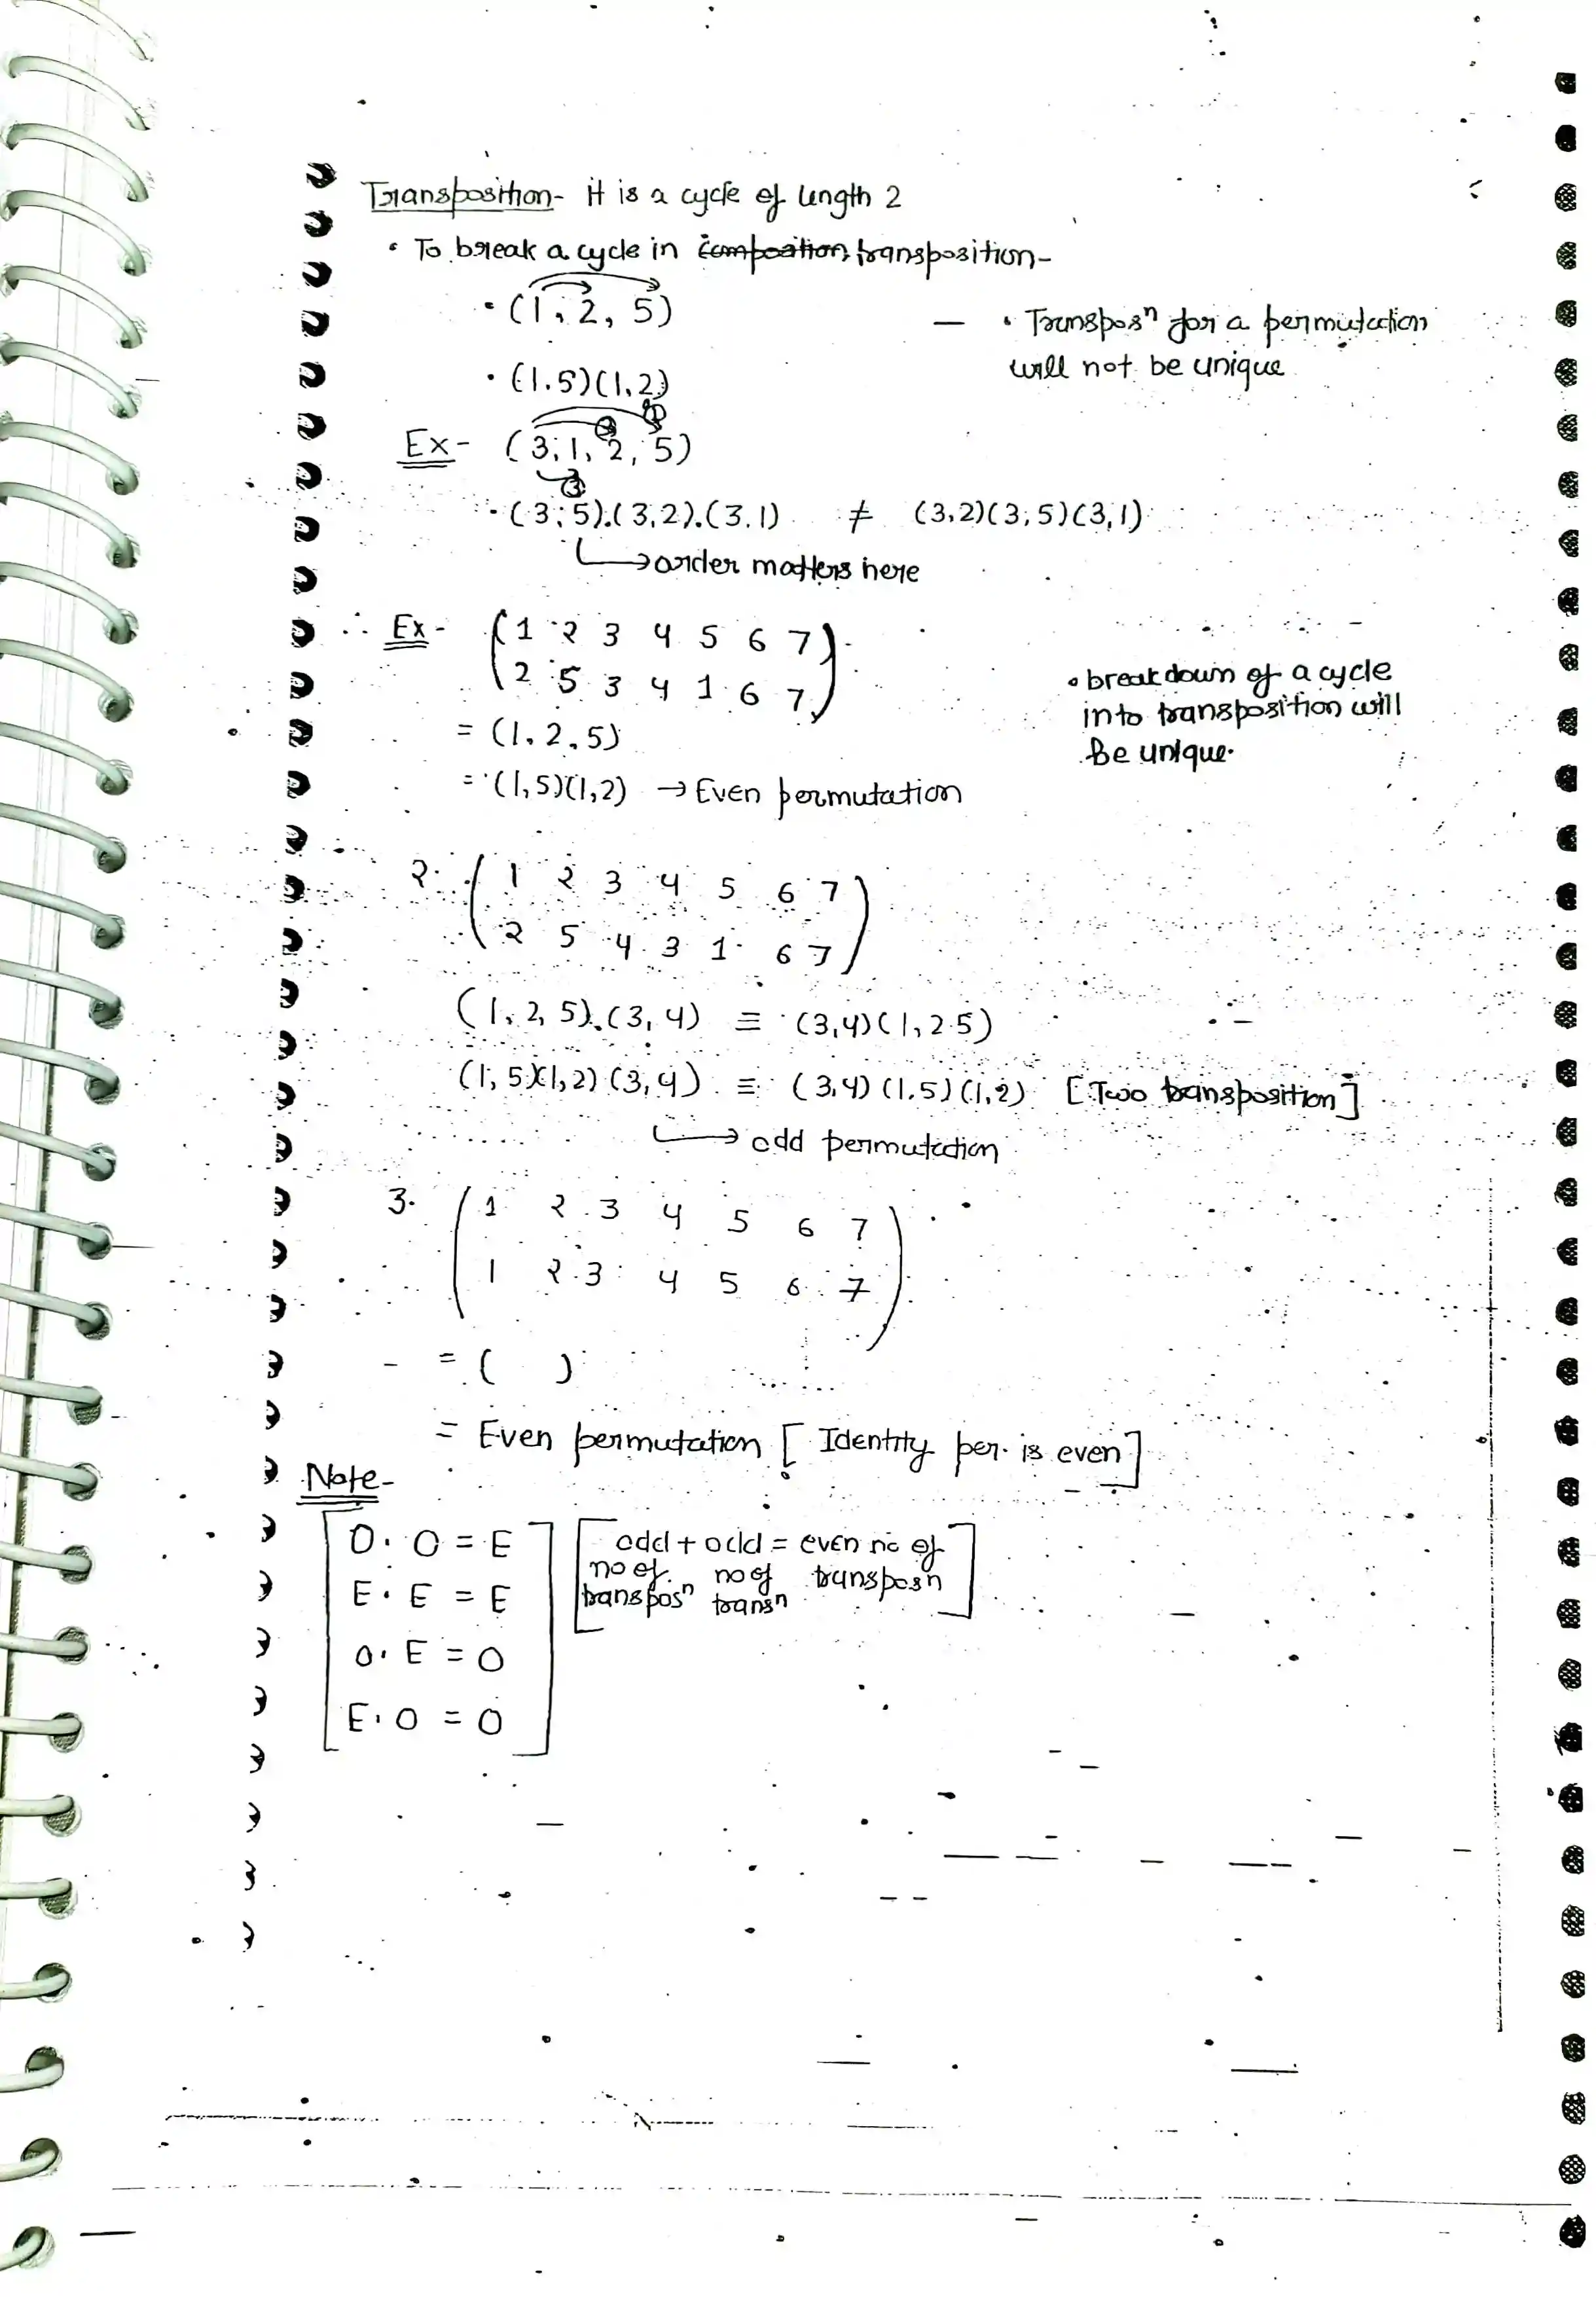 Transposition- it is a cycle of length 2
• To break a cycle in composition transposition-
• (1, 2, 5)
— • Transposⁿ for a permutation
will not be unique
• (1,5)(1,2)
Ex- (3, 1, 2, 5)
① ② ③
• (3,5).(3,2).(3,1) ≠ (3,2)(3,5)(3,1)
↳ order matters here
Ex- (1 2 3 4 5 6 7)
(2 5 3 4 1 6 7)
• breakdown of a cycle
into transposition will
be unique.
= (1, 2, 5)
= (1,5)(1,2) → Even permutation
2. (1 2 3 4 5 6 7)
(2 5 4 3 1 6 7)
(1, 2, 5).(3, 4) ≡ (3,4)(1, 2 5)
(1, 5)(1,2)(3,4) ≡ (3,4)(1,5)(1,2) [Two transposition]
↳ odd permutation
3. (1 2 3 4 5 6 7)
(1 2 3 4 5 6 7)
= ( )
= Even permutation [Identity per. is even]
Note-
O. O = E
E. E = E
O. E = O
E. O = O
[odd + odd = even no of
no of no of transposn
transposⁿ transⁿ]